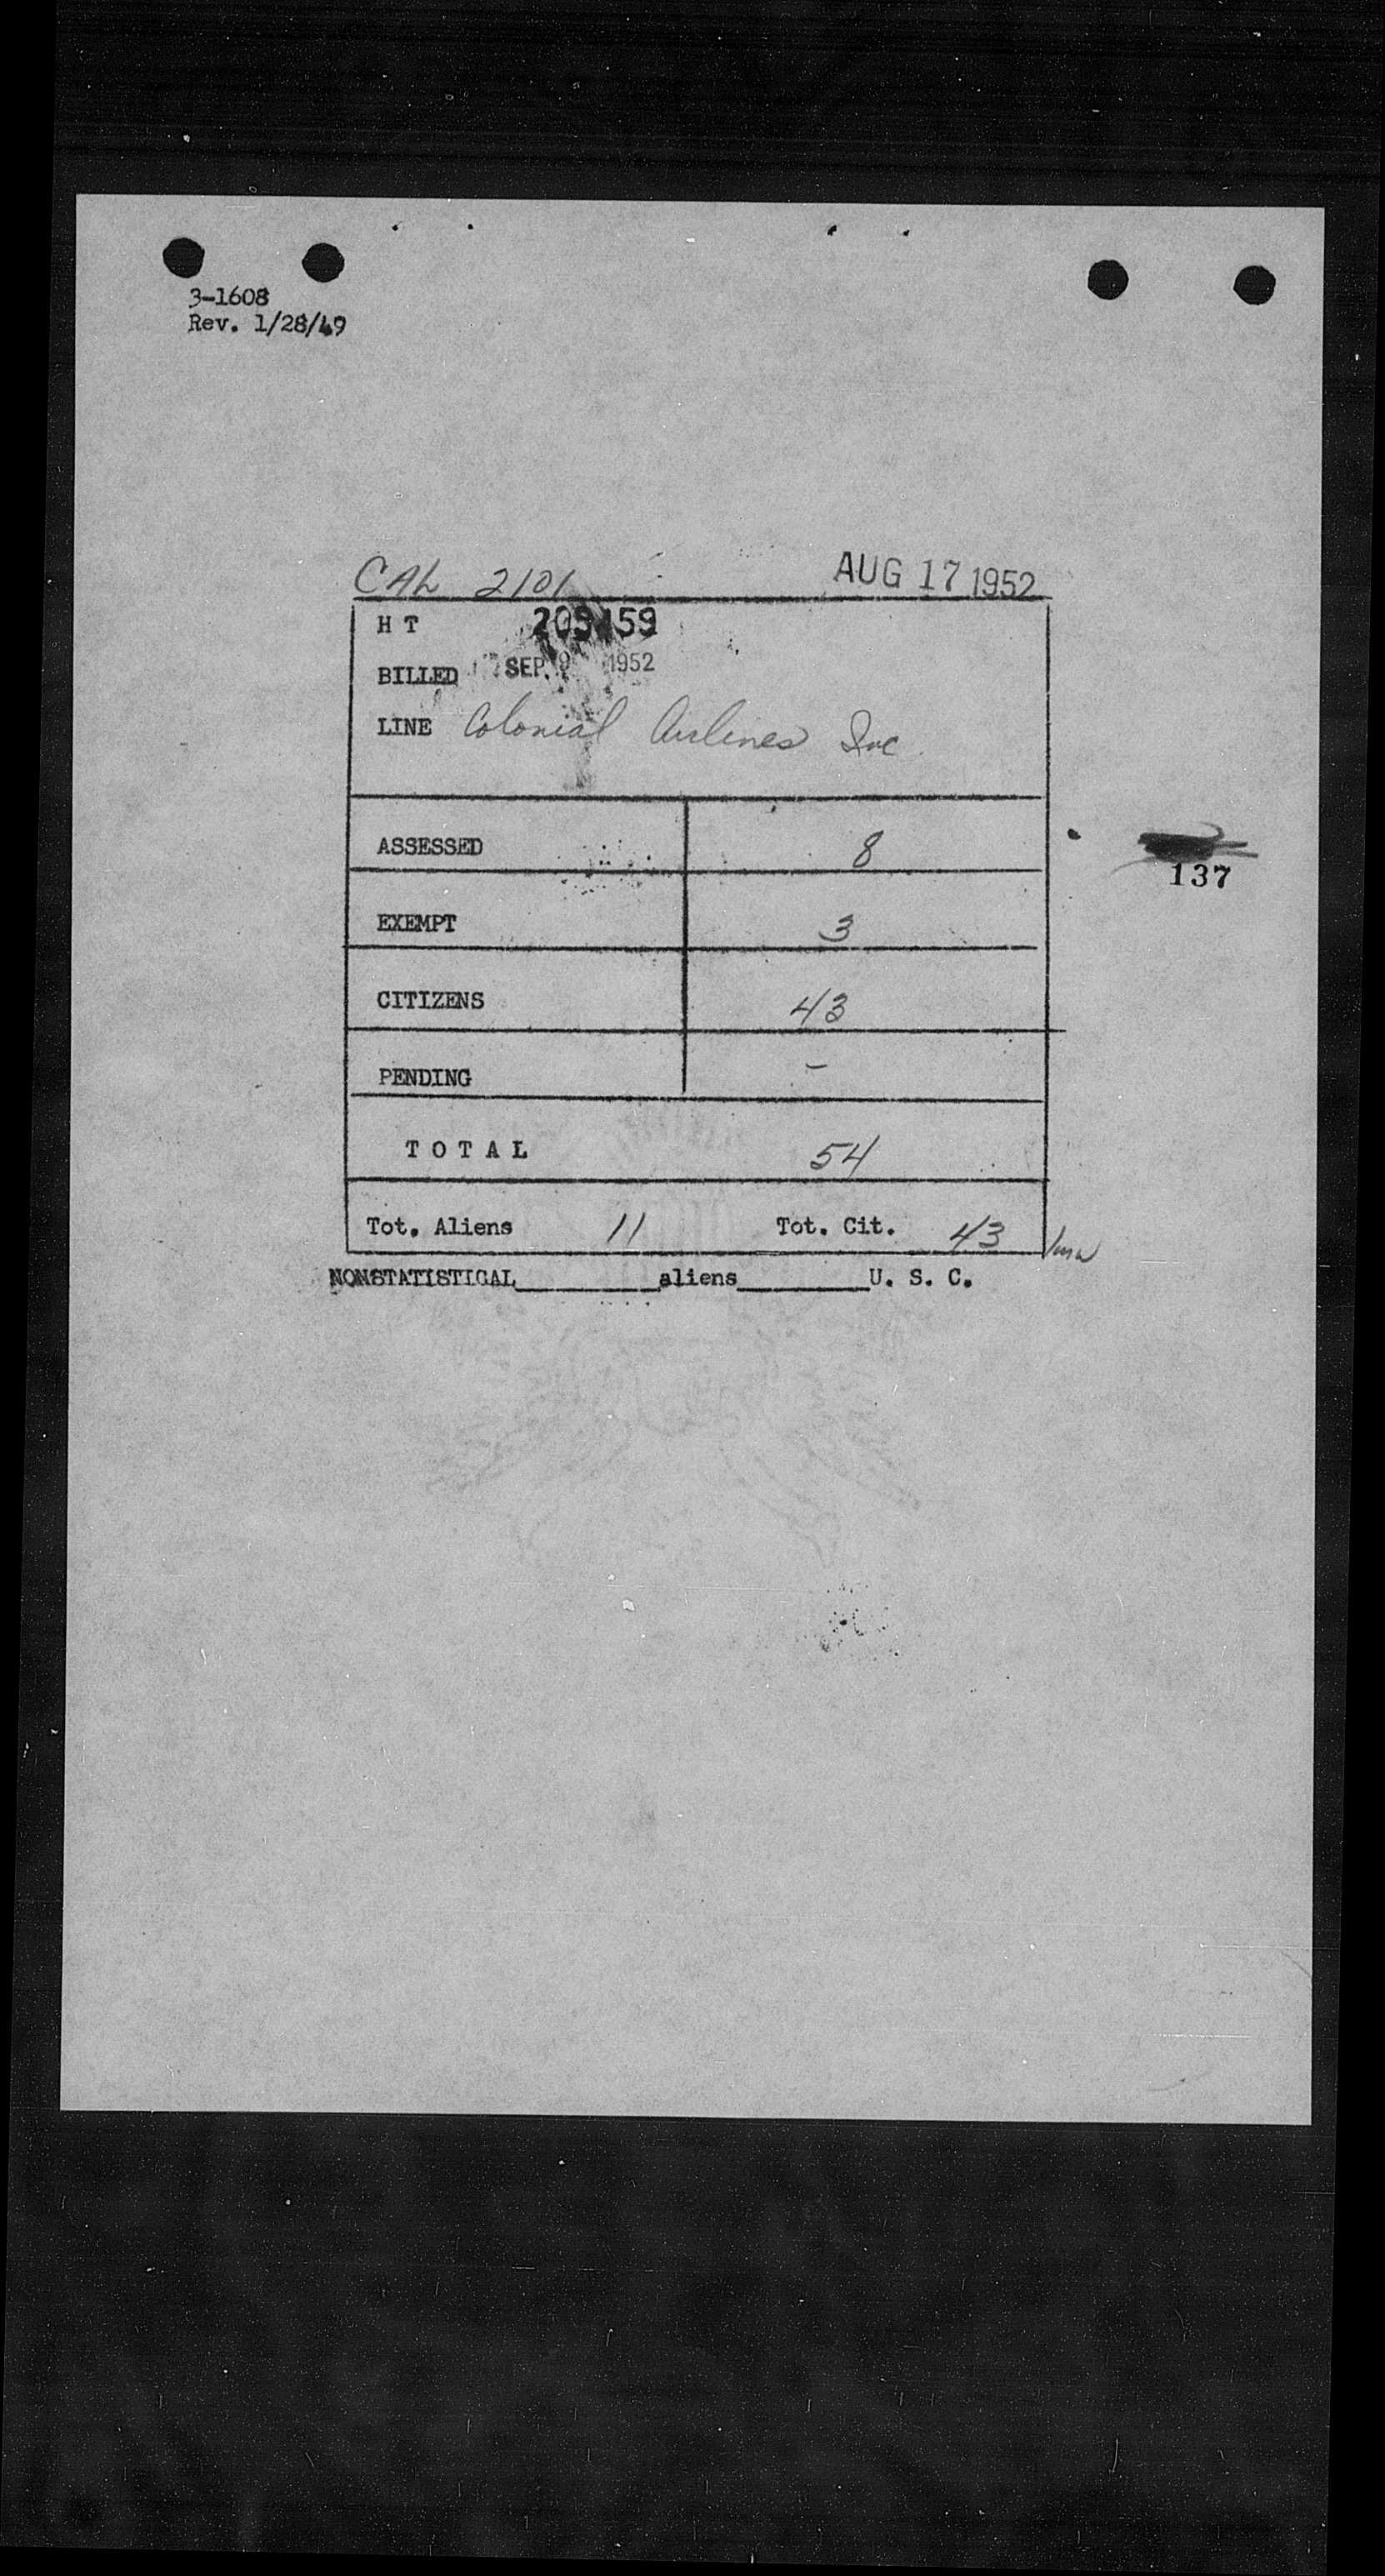 3-1608
Rev. 1/28/49
CAL 2101 AUG 17 1952
H T 209159
BILLED SEP 9 1952
LINE Colonial Airlines Inc.
ASSESSED 8
137
EXEMPT 3
CITIZENS 43
PENDING -
T O T A L 54
Tot. Aliens 11 Tot. Cit. 43
NONSTATISTICAL________aliens________U. S. C.